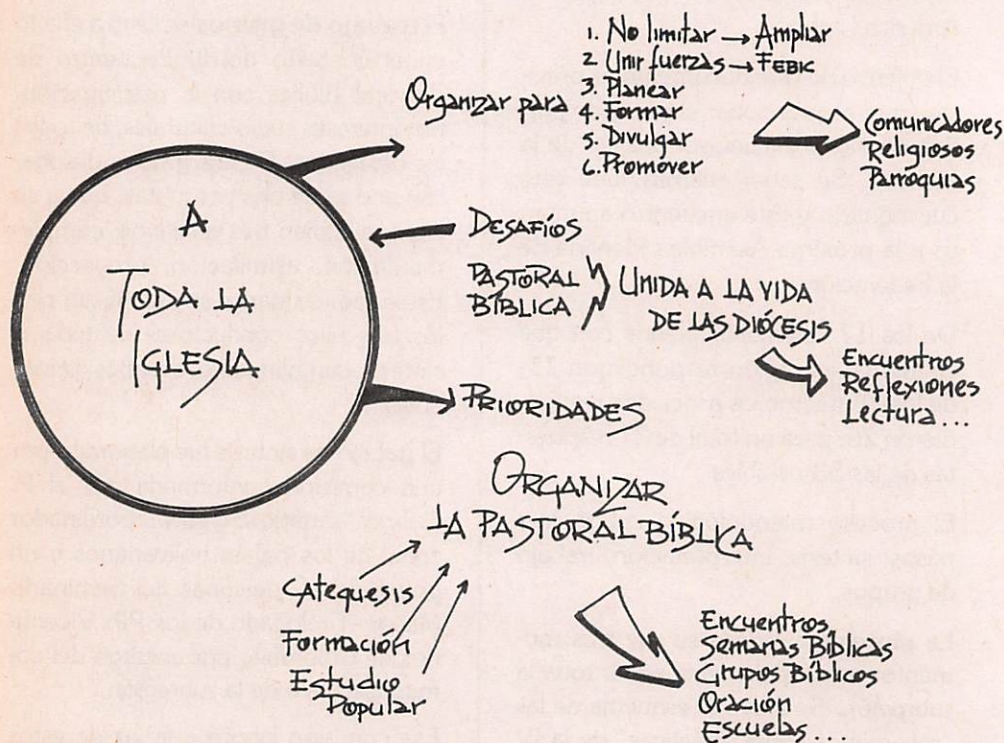 1. No limitar → Ampliar
2. Unir fuerzas → FEBIC
3. Planear
4. Formar
5. Divulgar
6. Promover
Organizar para
Comunicadores
Religiosos
Parroquias
A
TODA LA
IGLESIA
DESAFÍOS
PASTORAL
BÍBLICA
UNIDA A LA VIDA
DE LAS DIÓCESIS
Encuentros
Reflexiones
Lectura...
PRIORIDADES
ORGANIZAR
LA PASTORAL BÍBLICA
Catequesis
Formación
Estudio
Popular
Encuentros
Semanas Bíblicas
Grupos Bíblicos
Oración
Escuelas...